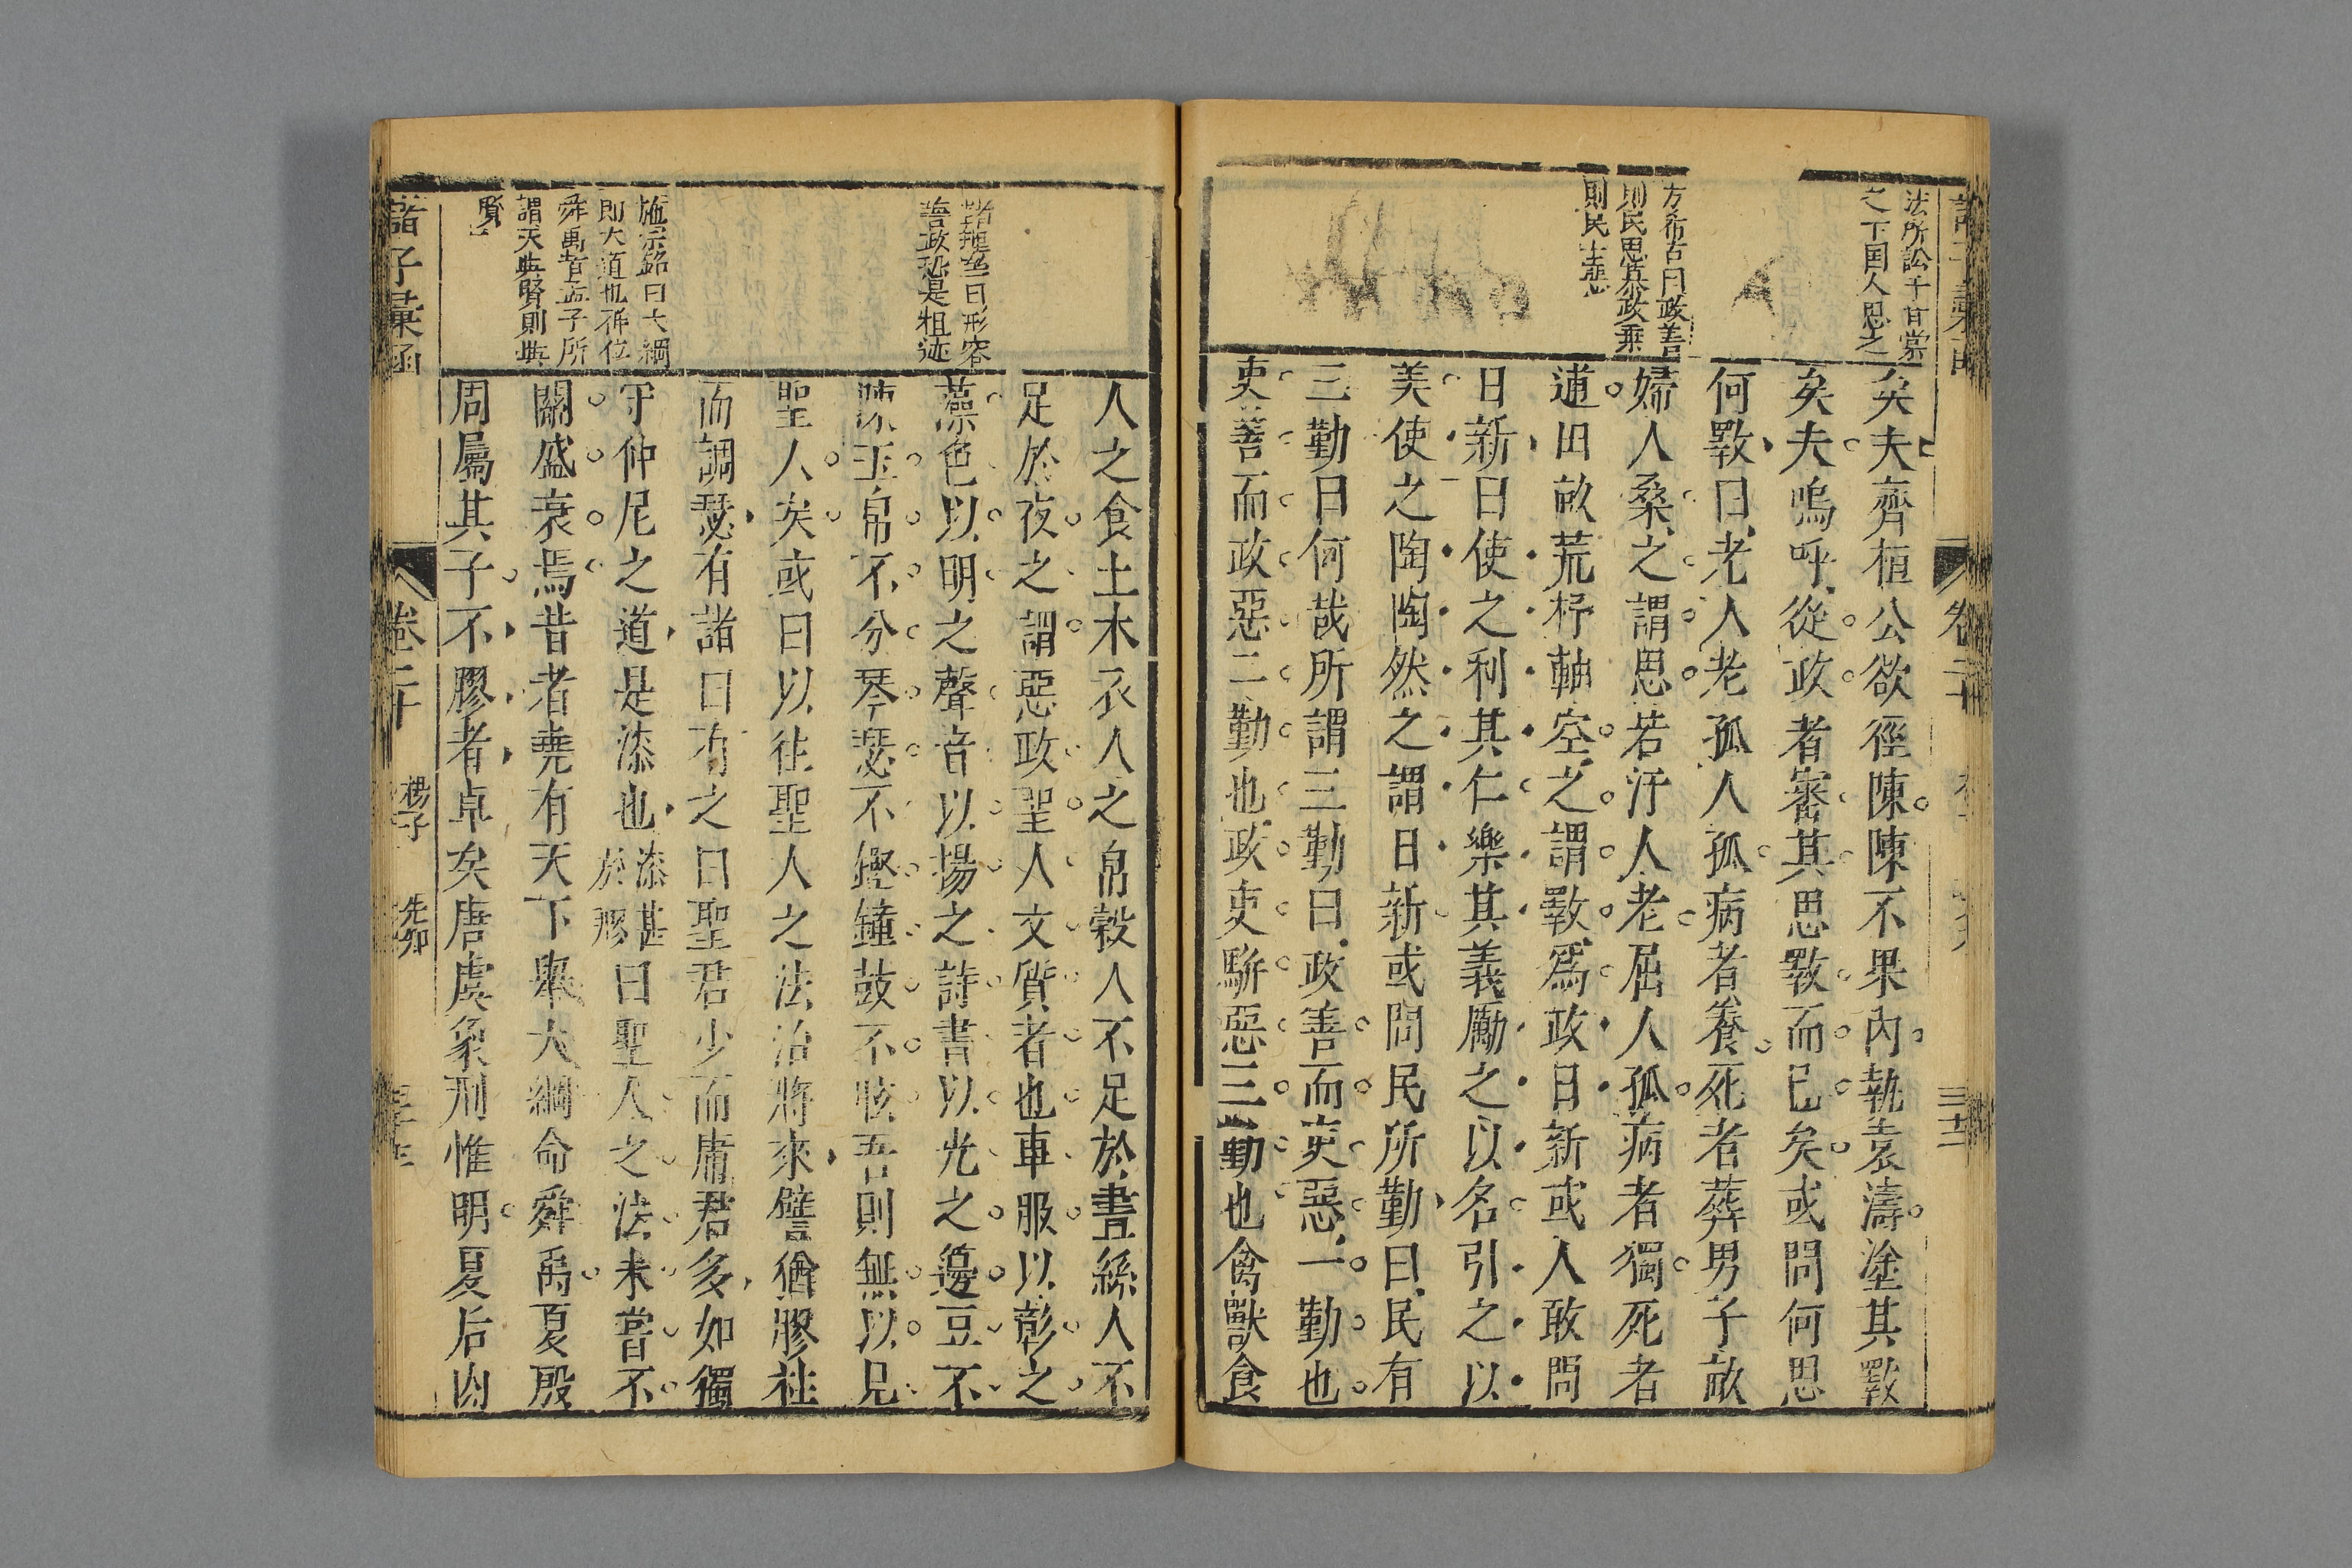 法所訟于甘棠
之下国人思之
矣夫齊桓公欲徑陳陳不果內執袁濤塗其斁
矣夫嗚呼從政者審其思斁而已矣或問何思
何斁曰老人老孤人孤病者養死者葬男子畝
婦人桑之謂思若汙人老屈人孤病者獨死者
逋田畝荒杼軸空之謂斁爲政日新或人敢問
日新曰使之利其仁樂其義厲之以名引之以
美使之陶陶然之謂日新或問民所勤曰民有
三勤曰何哉所謂三勤曰政善而吏惡一勤也
吏善而政惡二勤也政吏駢惡三勤也禽獸食
方希古曰政善
則民思慕政乖
則民
卷二十
人之食土木衣人之帛穀人不足於晝絲人不
足於夜之謂惡政聖人文質者也車服以彰之
藻色以明之聲音以揚之詩書以光之籩豆不
陳玉帛不分琴瑟不鏗鐘鼓不𢦤吾則無以見
聖人矣或曰以往聖人之法治將來譬猶膠柱
而調瑟有諸曰有之曰聖君少而庸君多如獨
守仲尼之道是漆也漆甚於膠曰聖人之法未嘗不
關盛衰焉昔者堯有天下舉大綱命舜禹夏殷
周屬其子不膠者卓矣唐虞象刑惟明夏后肉
曰形容
善政恐是粗迹
施宗銘曰大綱
即大道也禪位
舜禹皆孟子所
謂天與賢則與
賢
諸子彙函
卷二十
楊子
先知